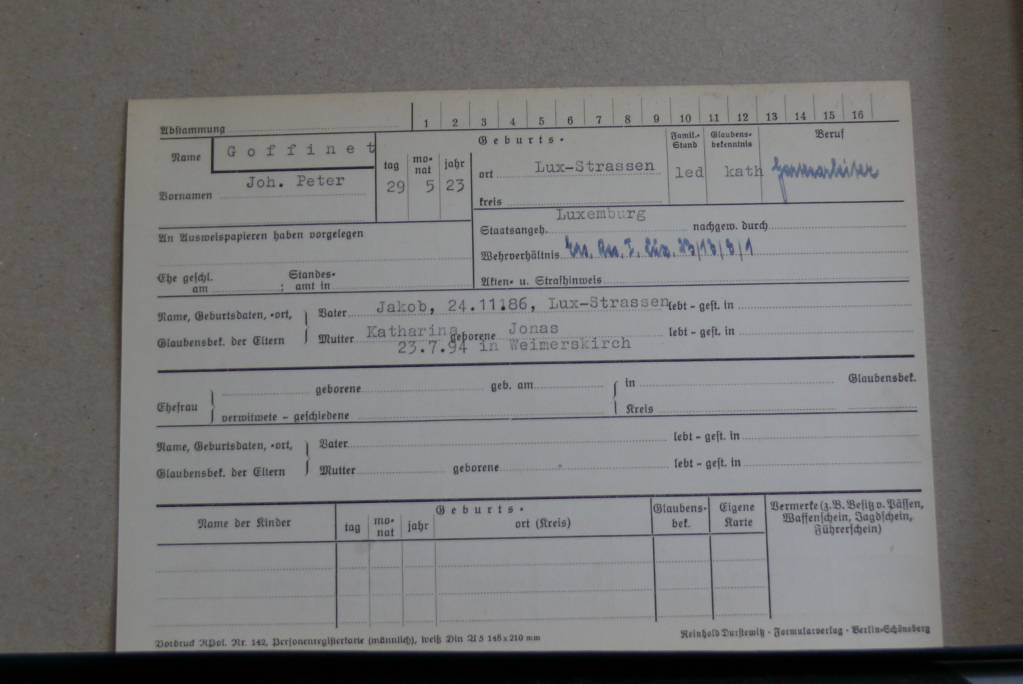 Abstammung 1 2 3 4 5 6 7 8 9 10 11 12 13 14 15 16
Name Goffinet
Vornamen Joh. Peter
Geburts-
tag monat jahr
29 5 23
ort Lux-Strassen
Kreis
Famil.-Stand
led
Glaubens-bekenntnis
kath
Beruf
An Ausweispapieren haben vorgelegen
Staatsangeh. Luxemburg nachgew. durch
Wehrverhältnis
Ehe geschl. am : Standesamt in
Akten- u. Strafhinweis
Name, Geburtsdaten, -ort,
Glaubensbek. der Eltern
Vater Jakob, 24.11.86, Lux-Strassen lebt - gest. in
Mutter Katharina geborene Jonas lebt - gest. in
23.7.94 in Weimerskirch
Ehefrau
geborene geb. am in Glaubensbek.
verwitwete - geschiedene Kreis
Name, Geburtsdaten, -ort,
Glaubensbek. der Eltern
Vater lebt - gest. in
Mutter geborene lebt - gest. in
Name der Kinder
Geburts-
tag monat jahr ort (Kreis)
Glaubens-bek.
Eigene Karte
Vermerke (z. B. Besitz v. Pässen,
Waffenschein, Jagdschein,
Führerschein)
Vordruck RPol. Nr. 142, Personenregisterkarte (männlich), weiß Din A 5 148 x 210 mm
Reinhold Durstewitz · Formularverlag · Berlin-Schöneberg